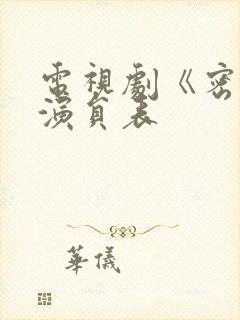 電視劇《密
演員表
華儀